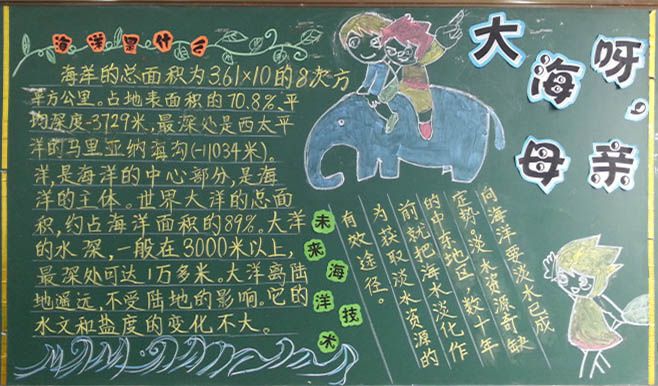 海洋是什么
海洋的总面积为3.61×10的8次方
平方公里。占地表面积的70.8%。平
均深度-3729米，最深处是西太平
洋的马里亚纳海沟(-11034米)。
洋，是海洋的中心部分，是海
洋的主体。世界大洋的总面
积，约占海洋面积的89%。大洋
的水深，一般在3000米以上，
最深处可达1万多米。大洋离陆
地遥远，不受陆地的影响。它的
水文和盐度的变化不大。
大海呀，
母亲
未来海洋技术
向海洋要淡水已成
定势。淡水资源奇缺
的中东地区，数十年
前就把海水淡化作
为获取淡水资源的
有效途径。